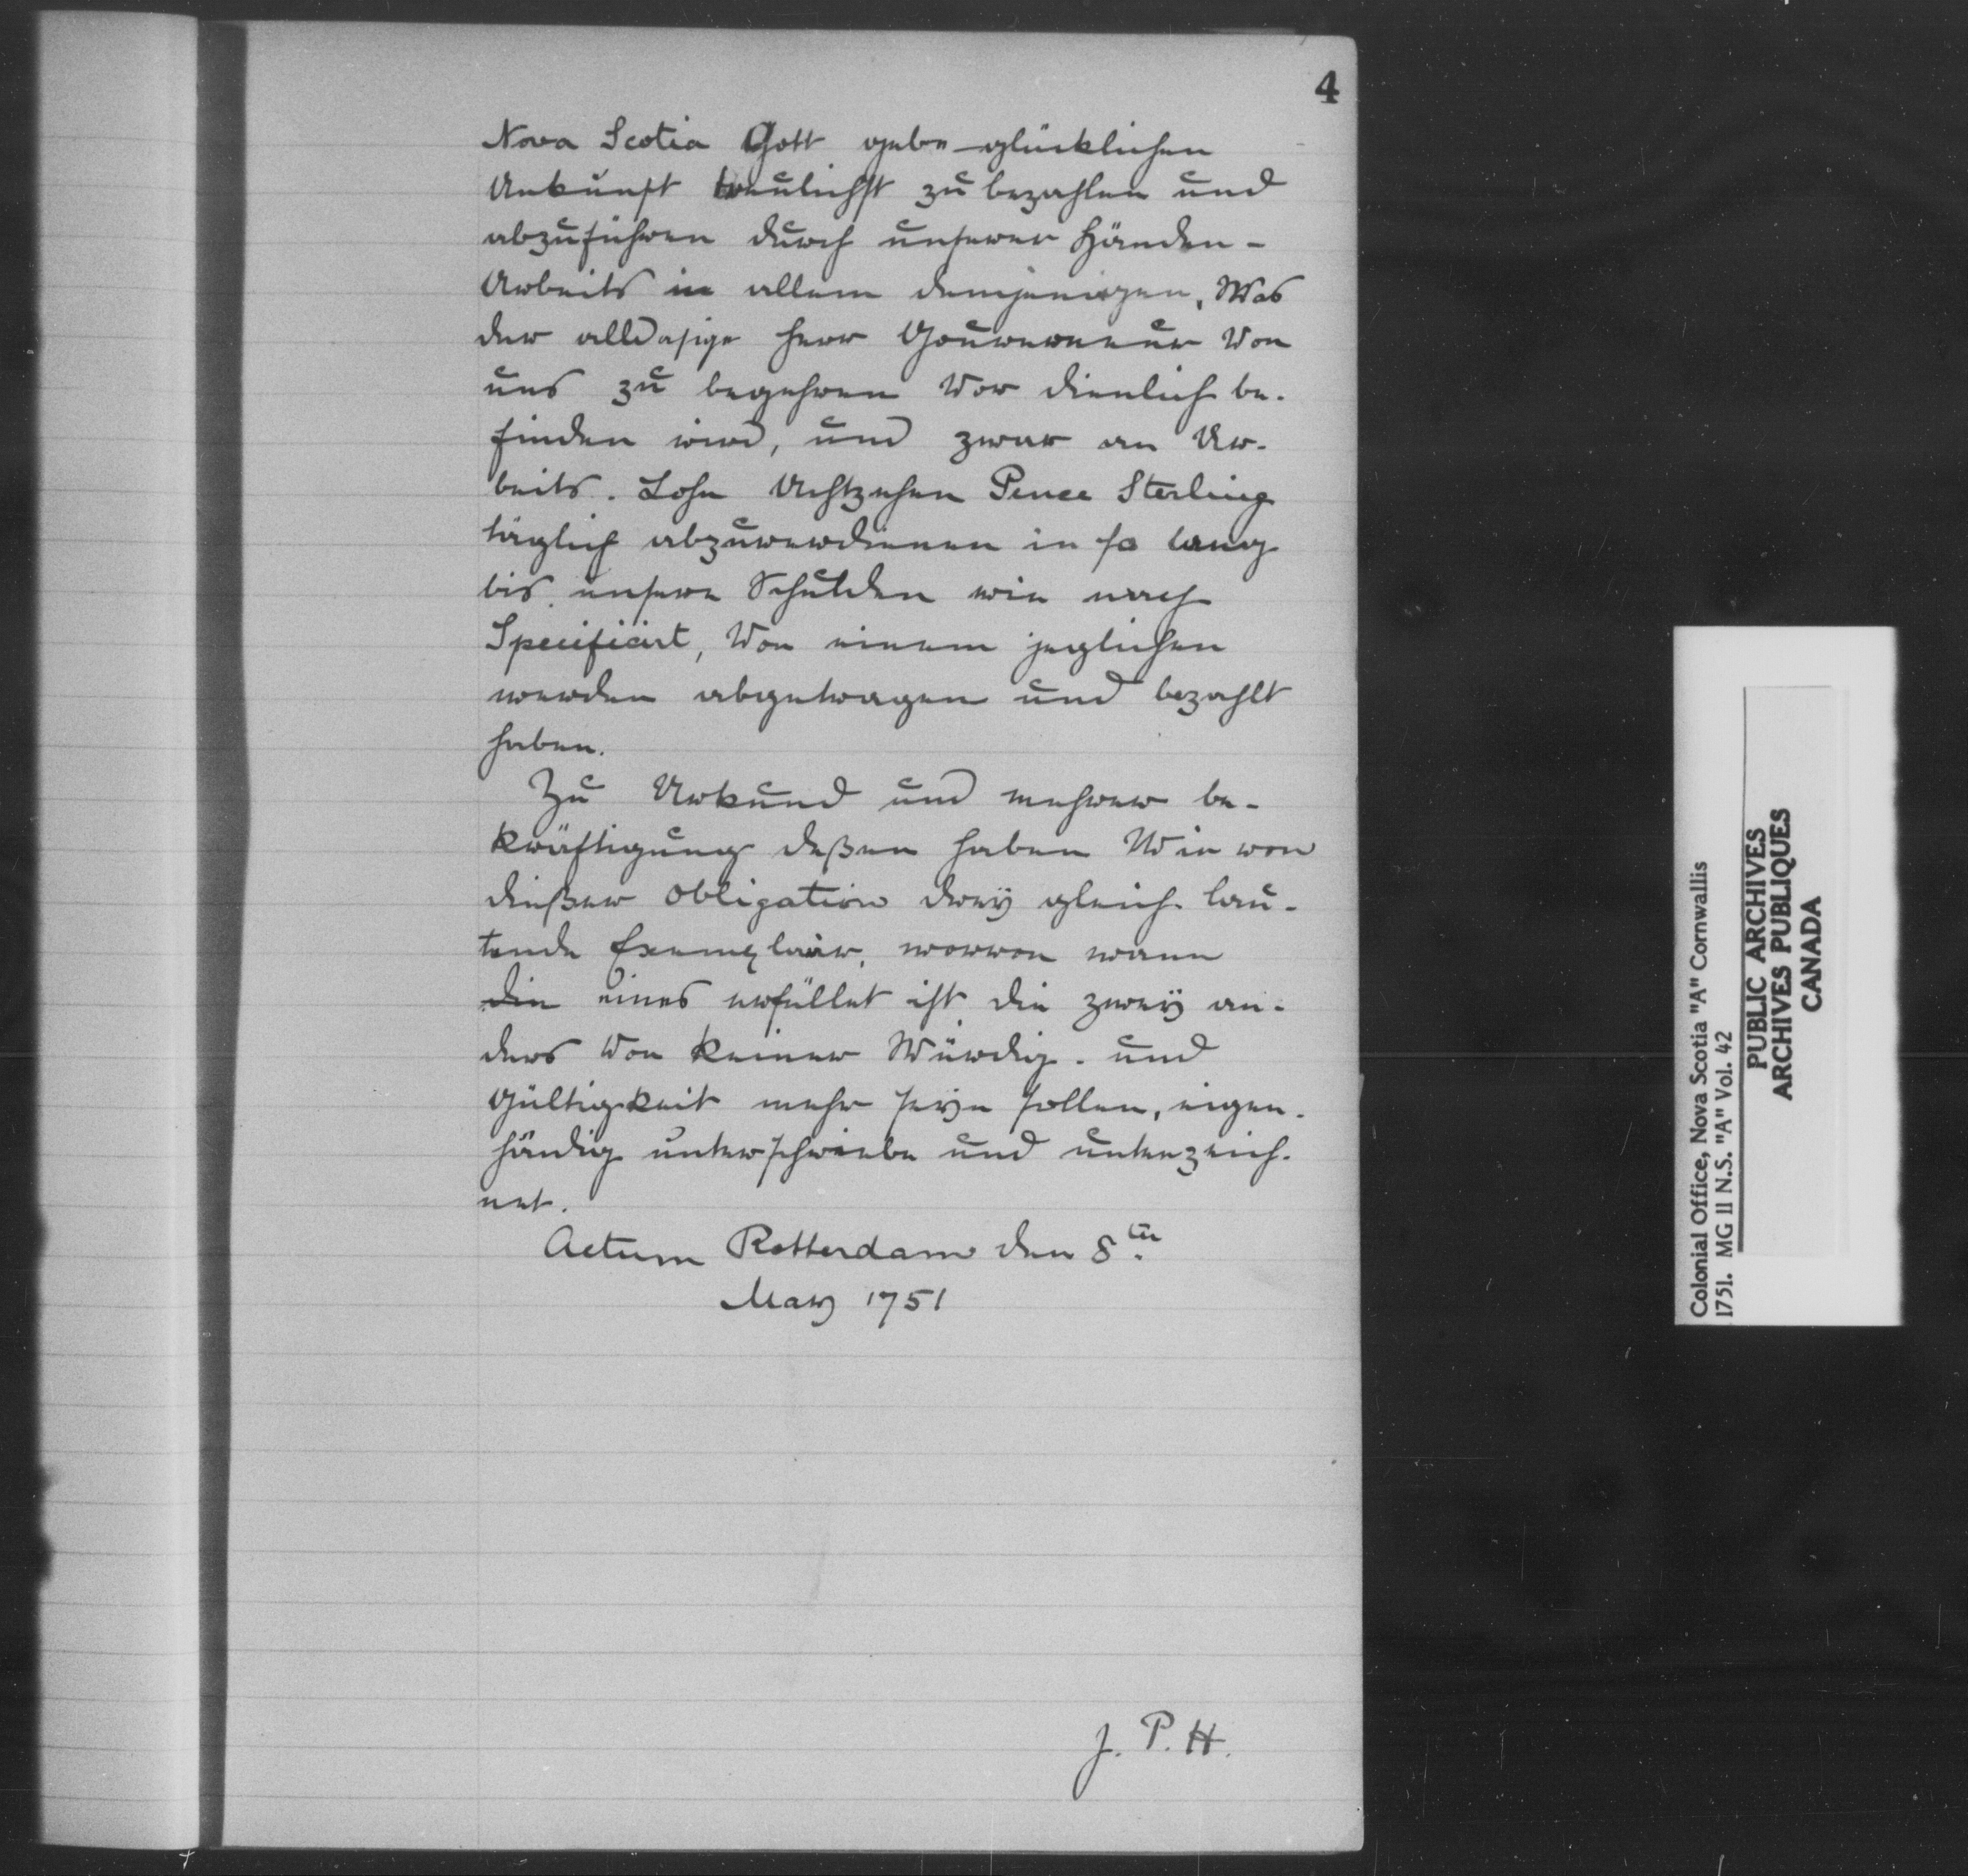 4
Nova Scotia Gott gebe glücklichen
Ankunft treulichst zu bezahlen und
abzuführen durch unserer Händen-
Arbeits in allem demjenigen, Was
der alldasige Herr Gouverneur Von
uns zu begehren Vor dienlich be-
finden wird, und zwar an Ar-
beits. Lohn Achtzehen Pence Sterling
täglich abzuverdienen in so lang
bis unsere Schulden wie nach
Specificirt, Von einem jeglichen
werden abgetragen und bezahlt
haben.
Zu Urkund und mehrer be-
kräftigung deßen haben Wir von
dießer obligation drey gleich lau-
tende Exemplair, worvon wann
die eines erfüllet ist die zwey an-
ders Von keiner Würdig- und
Gültigkeit mehr seyn sollen, eigen-
händig unterschriebe und unterzeich-
net.
Actum Rotterdam den 8.ten
May 1751
J. P. H.
Colonial Office, Nova Scotia "A" Cornwallis
1751. MG 11 N.S. "A" Vol. 42
PUBLIC ARCHIVES
ARCHIVES PUBLIQUES
CANADA